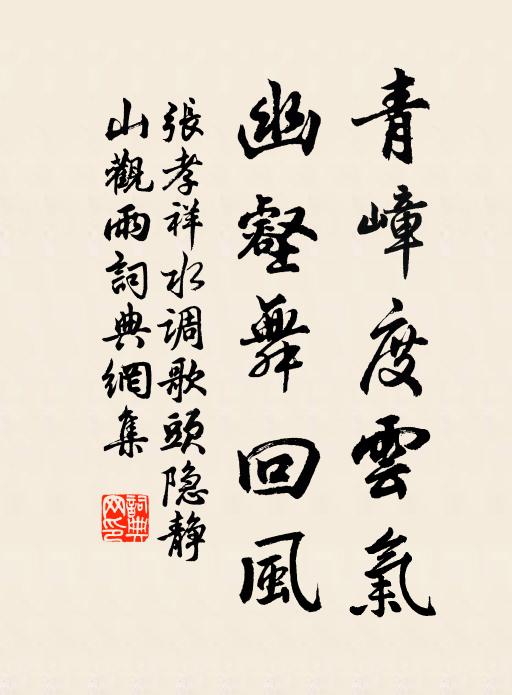 青嶂度雲氣
幽壑舞回風
張孝祥水调歌頭隐静
山觀雨詞典網集
詞典網印